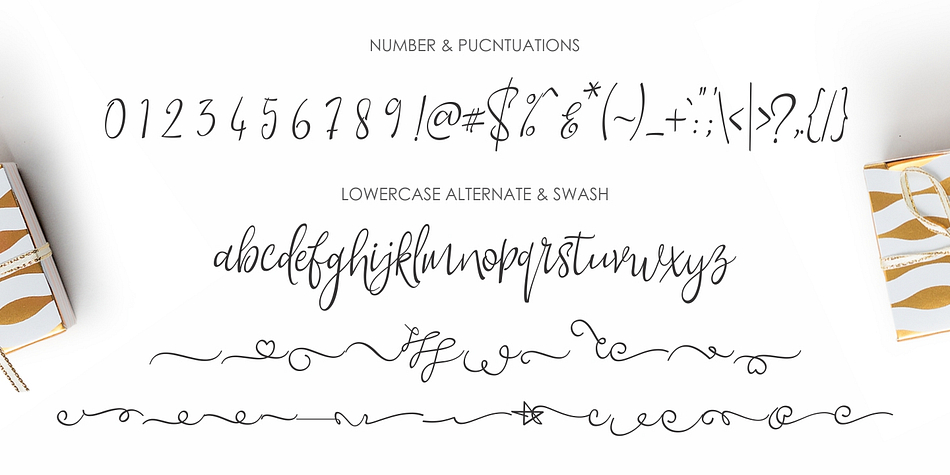 NUMBER & PUCNTUATIONS
0 1 2 3 4 5 6 7 8 9 ! @ # $ % ^ & * ( ~ ) _ + ` : ; " ' \ < | > ? , . { / }
LOWERCASE ALTERNATE & SWASH
abcdefghijklmnopqrstuvwxyz